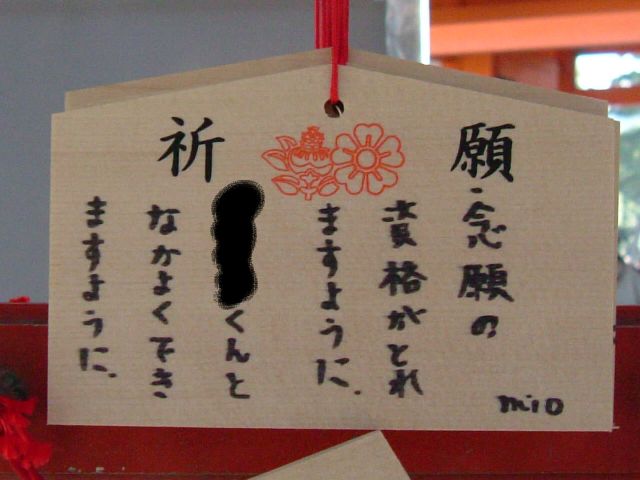 祈願
・念願の
資格がとれ
ますように.
くんと
なかよくでき
ますように.
mio